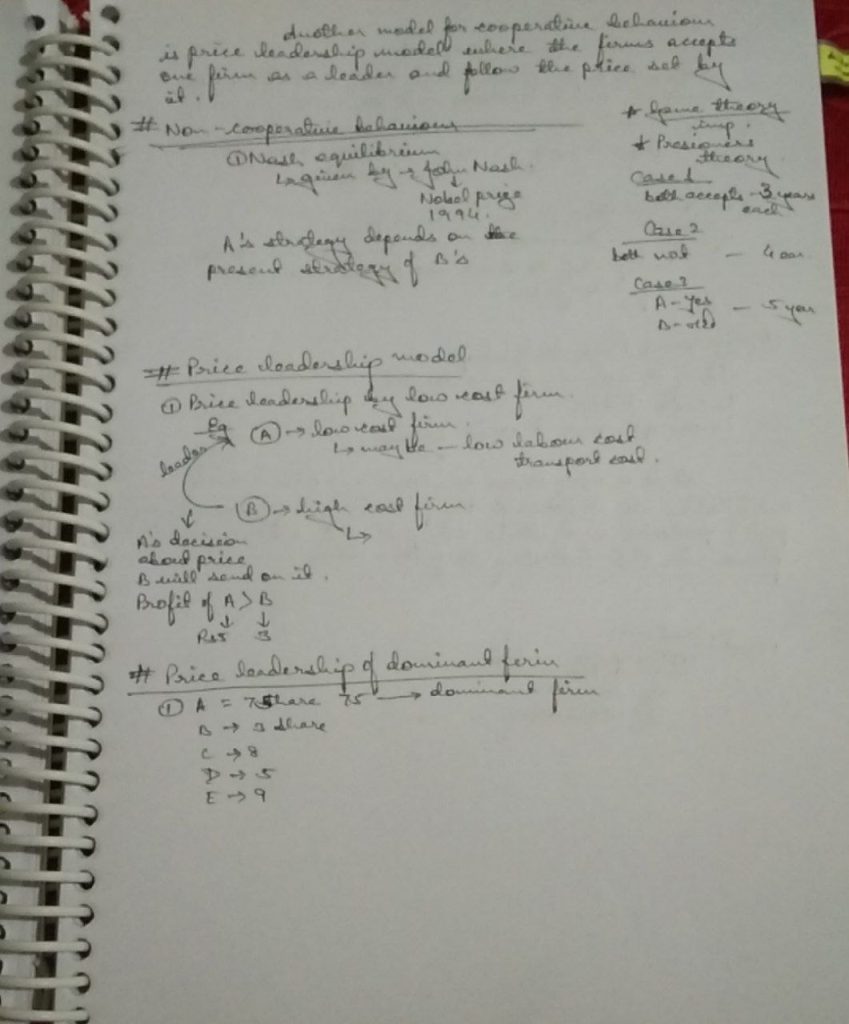 Another model for cooperative behaviour
is price leadership model where the firms accepts
one firm as a leader and follow the price set by
it.
# Non-cooperative behaviour
① Nash equilibrium
↳ given by → John Nash.
↓
Nobel prize
1994.
A's strategy depends on the
present strategy of B's
* Game theory
imp.
* Presioners
theory
Case 1
both accepts - 3 years
each
Case 2
both not - 4
Case 3
A - Yes
B - - 5 year
# Price leadership model
① Price leadership by low cost firm.
Eg (A) → low cost firm.
↳ may be - low labour cost
transport cost.
leader
(B) → high cost firm
↳
A's decision
about price
B will on it.
Profit of A > B
↓ ↓
Rs5 3
# Price leadership of dominant firm
① A = 75 share 75 → dominant firm
B → 3 share
C → 8
D → 5
E → 9